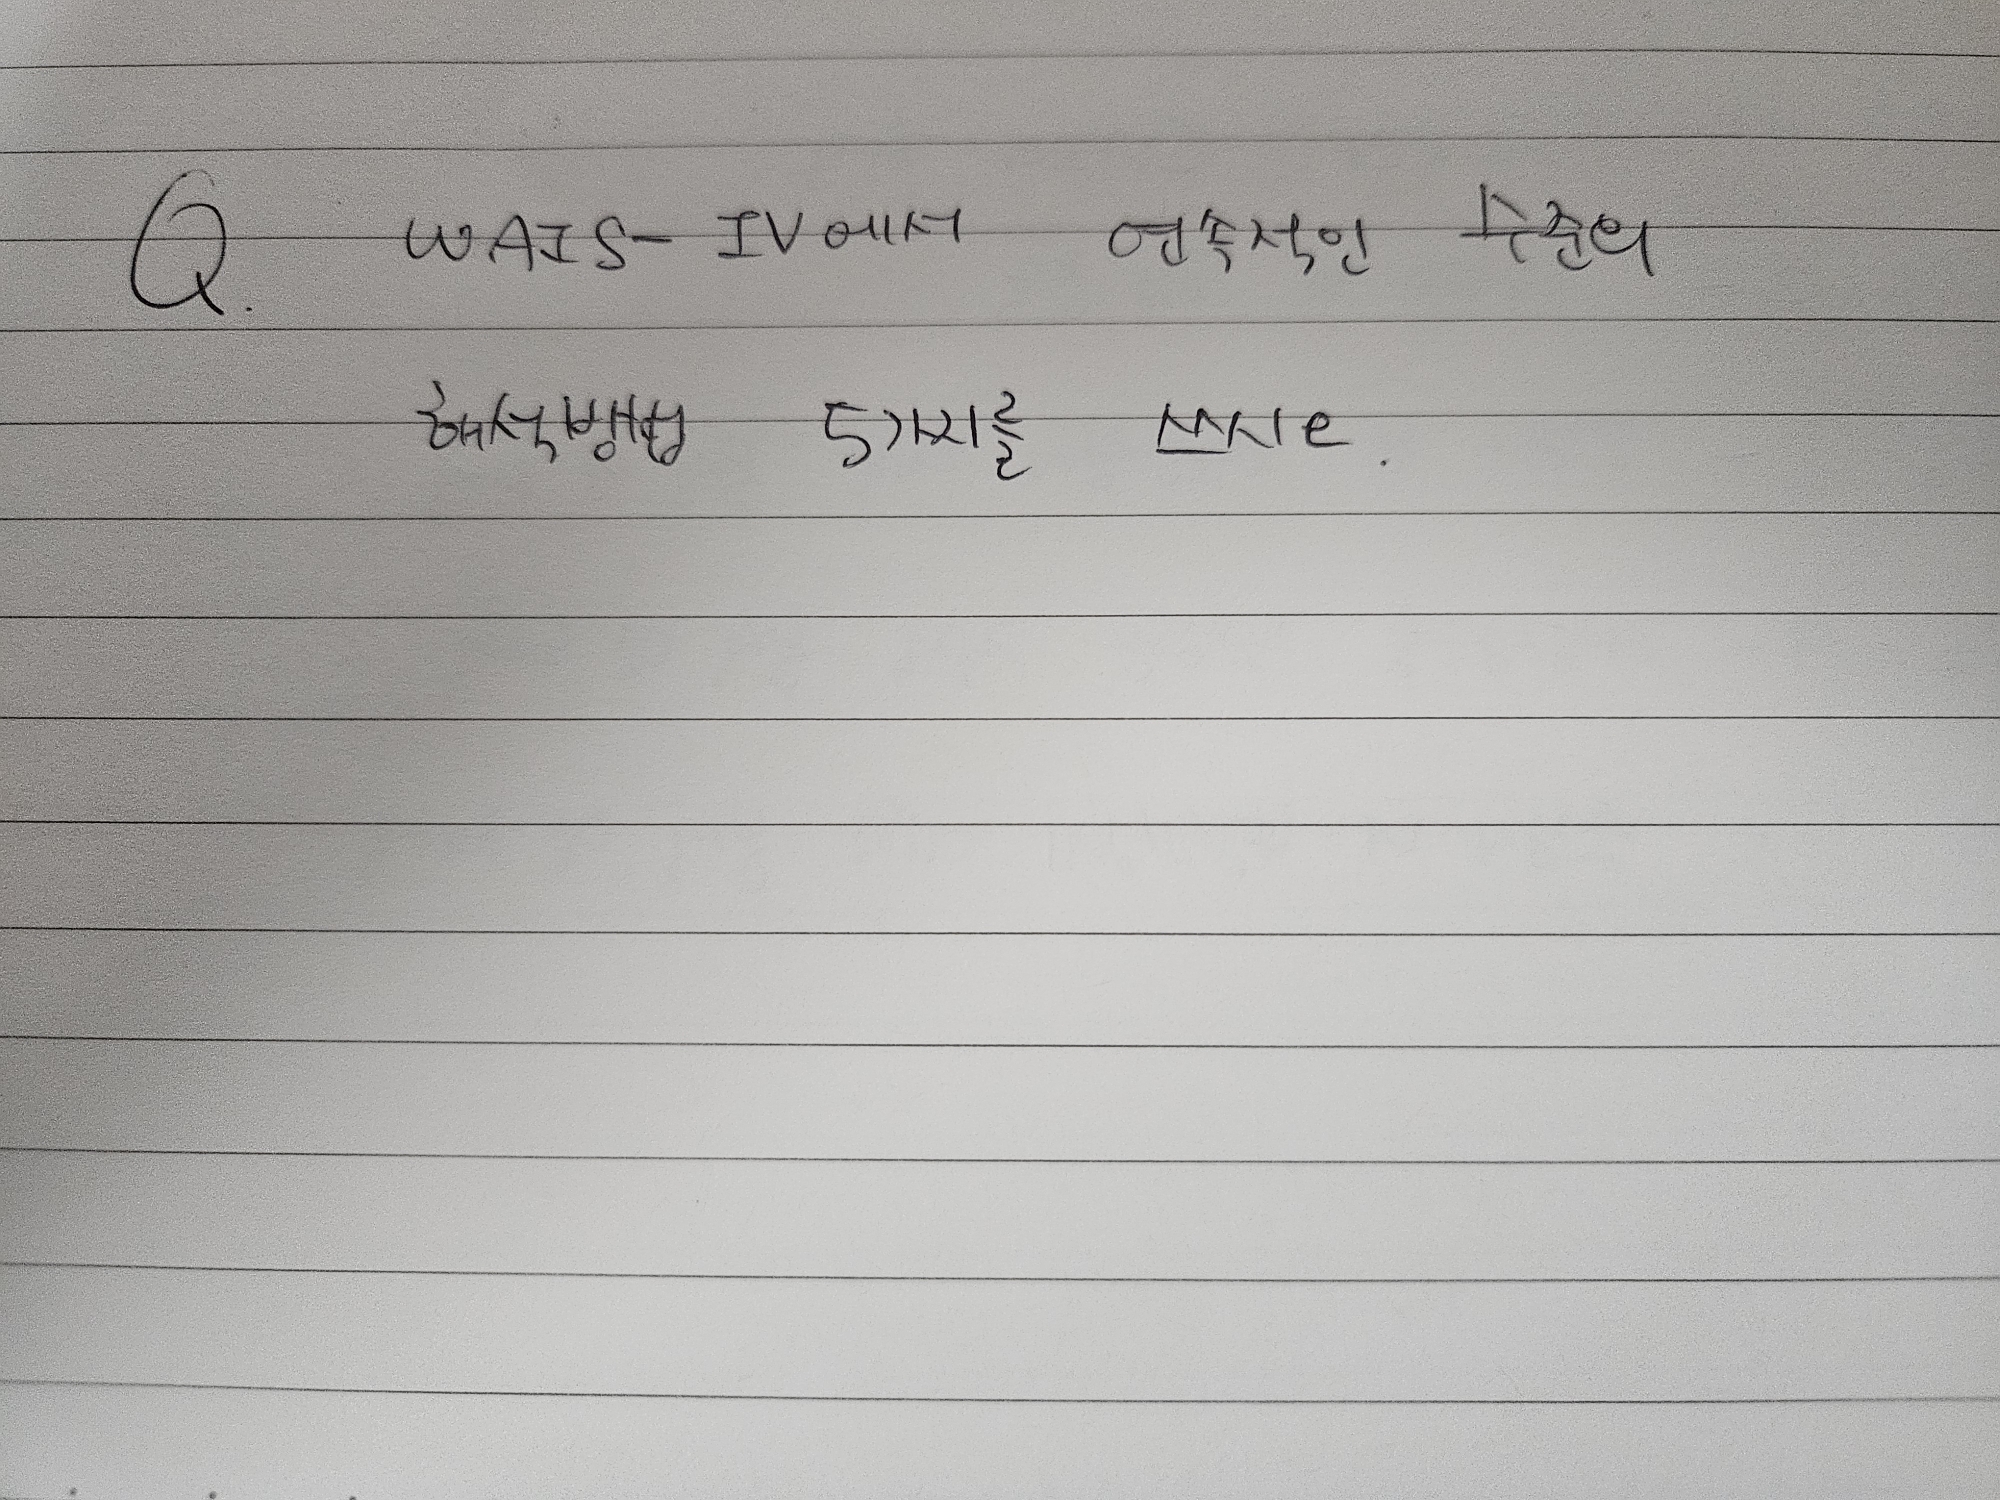 Q. WAIS-IV에서 연속적인 수준의
해석방법 5가지를 쓰시e.